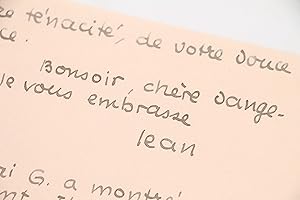 ténacité, de votre douce
ce.
Bonsoir, chère dange-
je vous embrasse
Jean
G. a montré